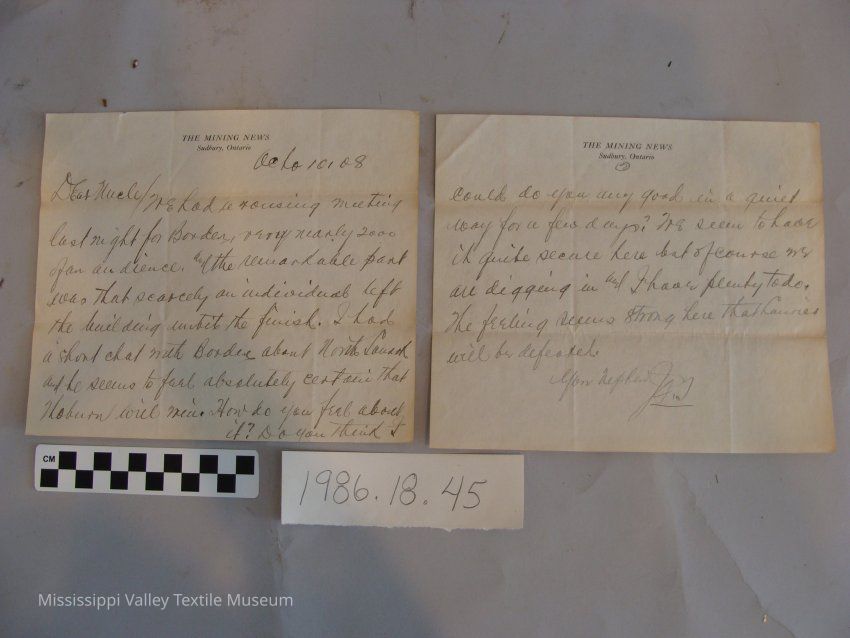 THE MINING NEWS
Sudbury, Ontario
Octo 10/08
Dear Uncle/ We had a rousing meeting
last night for Borden, very nearly 2000
of an audience. & the remarkable part
was that scarcely an individual left
the building until the finish. I had
a short chat with Borden about North Lanark
and he seems to feel absolutely certain that
Thoburn will win. How do you feel about
it? Do you think I
THE MINING NEWS
Sudbury, Ontario
2
could do you any good in a quiet
way for a few days? We seem to have
it quite secure here but of course we
are digging in & I have plenty to do.
The feeling seems strong here that Laurier
will be defeated.
Your Nephew
CM
1986.18.45
Mississippi Valley Textile Museum